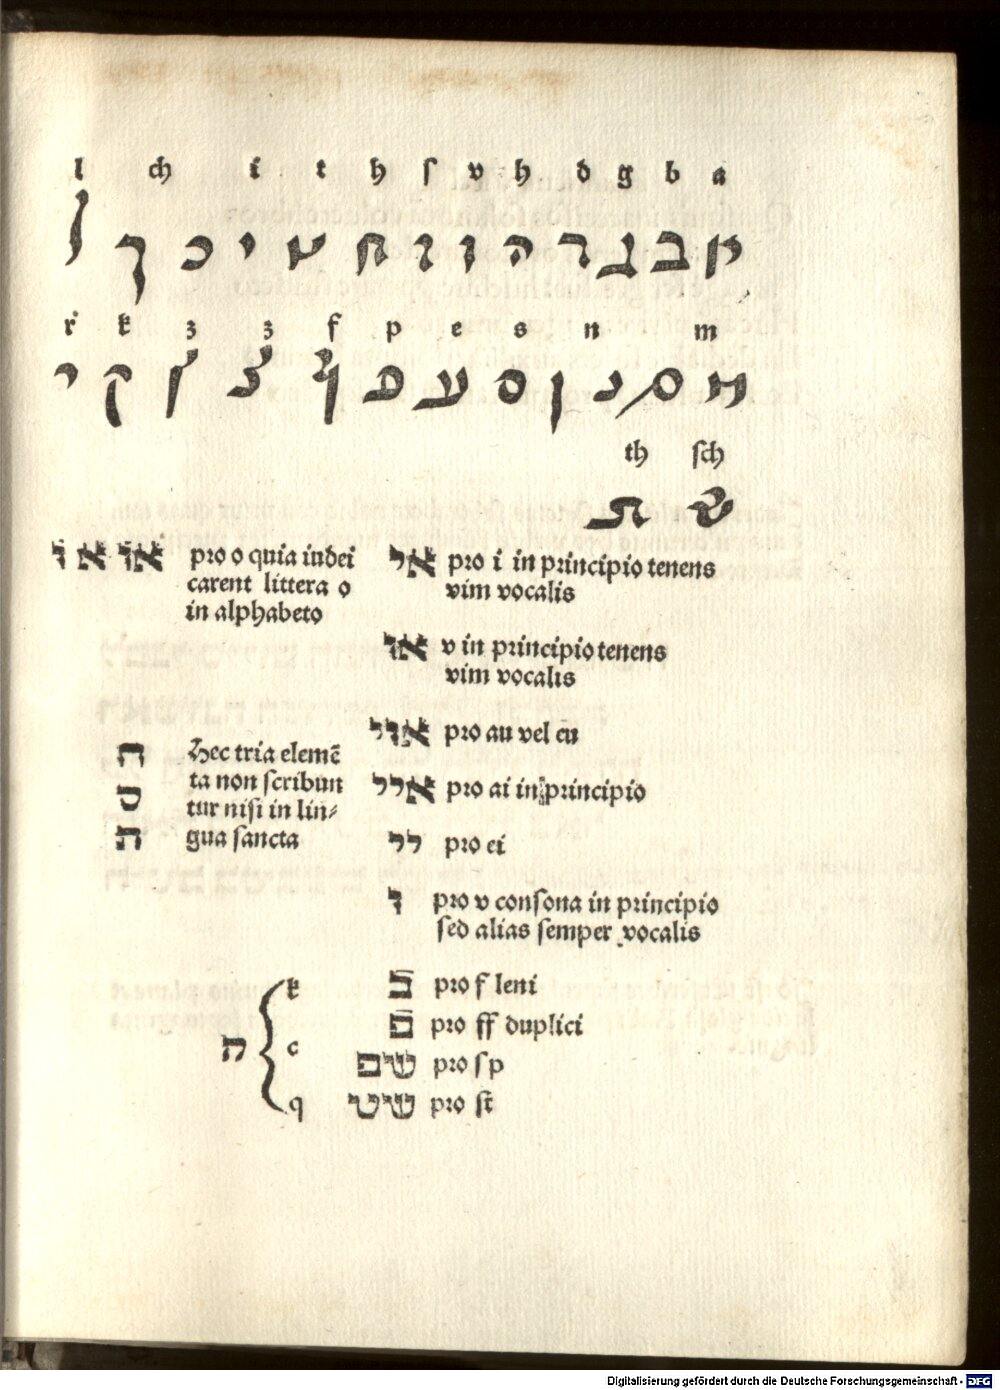 l ch i t h ſ v h d g b a
א ב ג ד ה ו ז ח ט י כ ך ל
r k z z f p e s n m
מ ם נ ן ס ע פ ף צ ץ ק ר
th ſch
ש ת
pro o quia iudei
carent littera o
in alphabeto
אי pro i in principio tenens
vim vocalis
או v in principio tenens
vim vocalis
pro au vel eu
ה Hec tria elemē
ס ta non ſcribun
ת tur niſi in lin⸗
gua ſancta
איי pro ai in principio
יי pro ei
ו pro v conſona in principio
ſed alias ſemper vocalis
ק k c q
פֿ pro f leni
פֿ pro ff duplici
שפ pro ſp
שט pro ſt
Digitalisierung gefördert durch die Deutsche Forschungsgemeinschaft - DFG